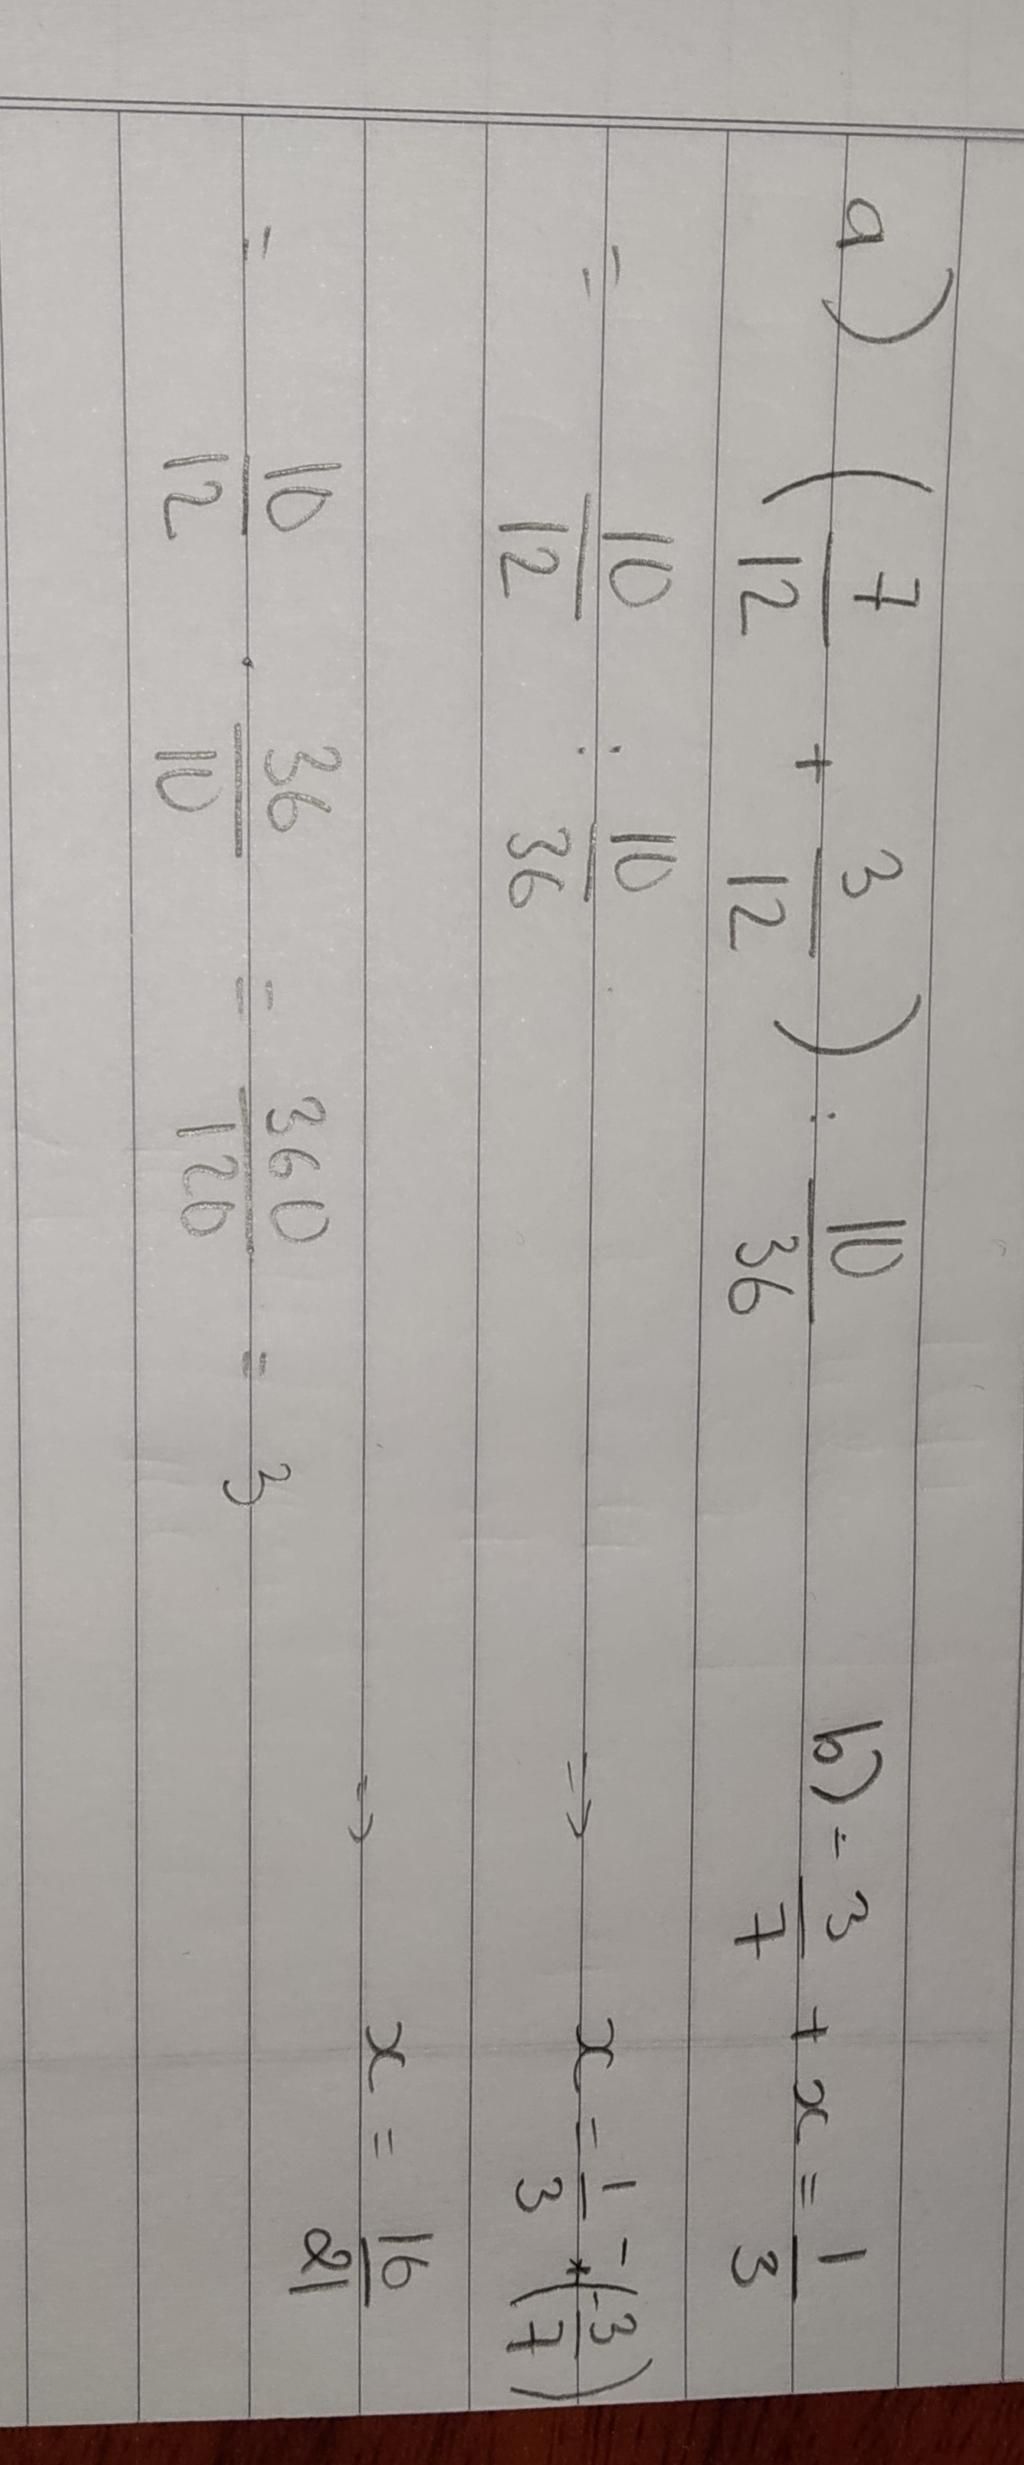 a) (7/12 + 3/12) : 10/36
= 10/12 : 10/36
= 10/12 . 36/10 = 360/120 = 3
b) - 3/7 + x = 1/3
=> x = 1/3 - (-3/7)
=> x = 16/21